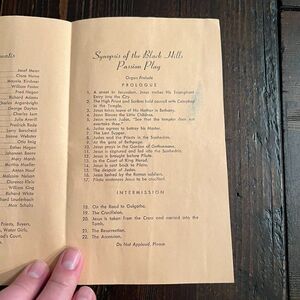 Josef Meier
Clare Hume
William Foster
Fred Hagen
Richard Adams
Charles Argenbright
George Dayton
Charles Lein
Julia Averill
Frederick Reid
Webster
Otto Berg
Estes
Mary Monk
Martha Mueller
Anton Hoof
Malcolm Nelson
Clarence Klein
William King
Richard White
Richard Laudenbach
Max Schultz
Priests, Buyers,
Water Girls,
Court.
Synopsis of the Black Hills
Passion Play
Organ Prelude
PROLOGUE
1. A street in Jerusalem. Jesus makes His triumphant
Entry into the City.
2. The High Priest and Scribes hold council with Caiaphas
in the Temple.
3. Jesus takes leave of His Mother in Bethany.
4. Jesus Blesses the Little Children.
5. Jesus warns Judas, "See that the tempter does not
overtake thee."
6. Judas agrees to betray his Master.
7. The Last Supper.
8. Judas and the Priests in the Sanhedrin.
9. At the gate of Bethpage.
10. Jesus prays in the Garden of Gethsemane.
11. Jesus is captured and led into the Sanhedrin.
12. Jesus is brought before Pilate.
13. In the Court of King Herod.
14. Jesus is sent back to Pilate.
15. The despair of Judas.
16. Jesus bribed by the Roman soldiers.
17. Pilate sentences Jesus to be crucified.
INTERMISSION
18. On the Road to Golgotha.
19. The Crucifixion.
20. Jesus is taken from the Cross and carried into the
Tomb.
21. The Resurrection.
22. The Ascension.
Do Not Applaud, Please